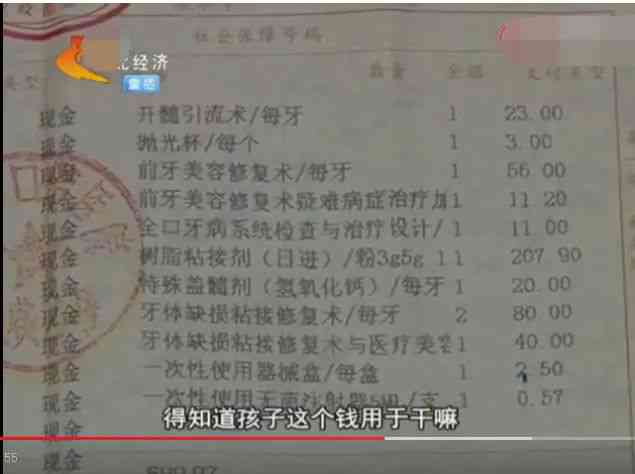 社会保障号码
北经济
重播
类型 数量 金额 支付类型
现金 开髓引流术/每牙 1 23.00
现金 抛光杯/每个 1 3.00
现金 前牙美容修复术/每牙 1 56.00
现金 前牙美容修复术疑难病症治疗加 1 11.20
现金 全口牙病系统检查与治疗设计/ 1 11.00
现金 树脂粘接剂(日进)/粉3g5g 1 1 207.90
现金 特殊盖髓剂(氢氧化钙)/每牙 1 20.00
现金 牙体缺损粘接修复术/每牙 2 80.00
现金 牙体缺损粘接修复术与医疗美容 1 40.00
现金 一次性使用器械盒/每盒 1 2.50
现金 一次性使用无菌注射器5ml/支 1 0.57
得知道孩子这个钱用于干嘛
现金
55
现金